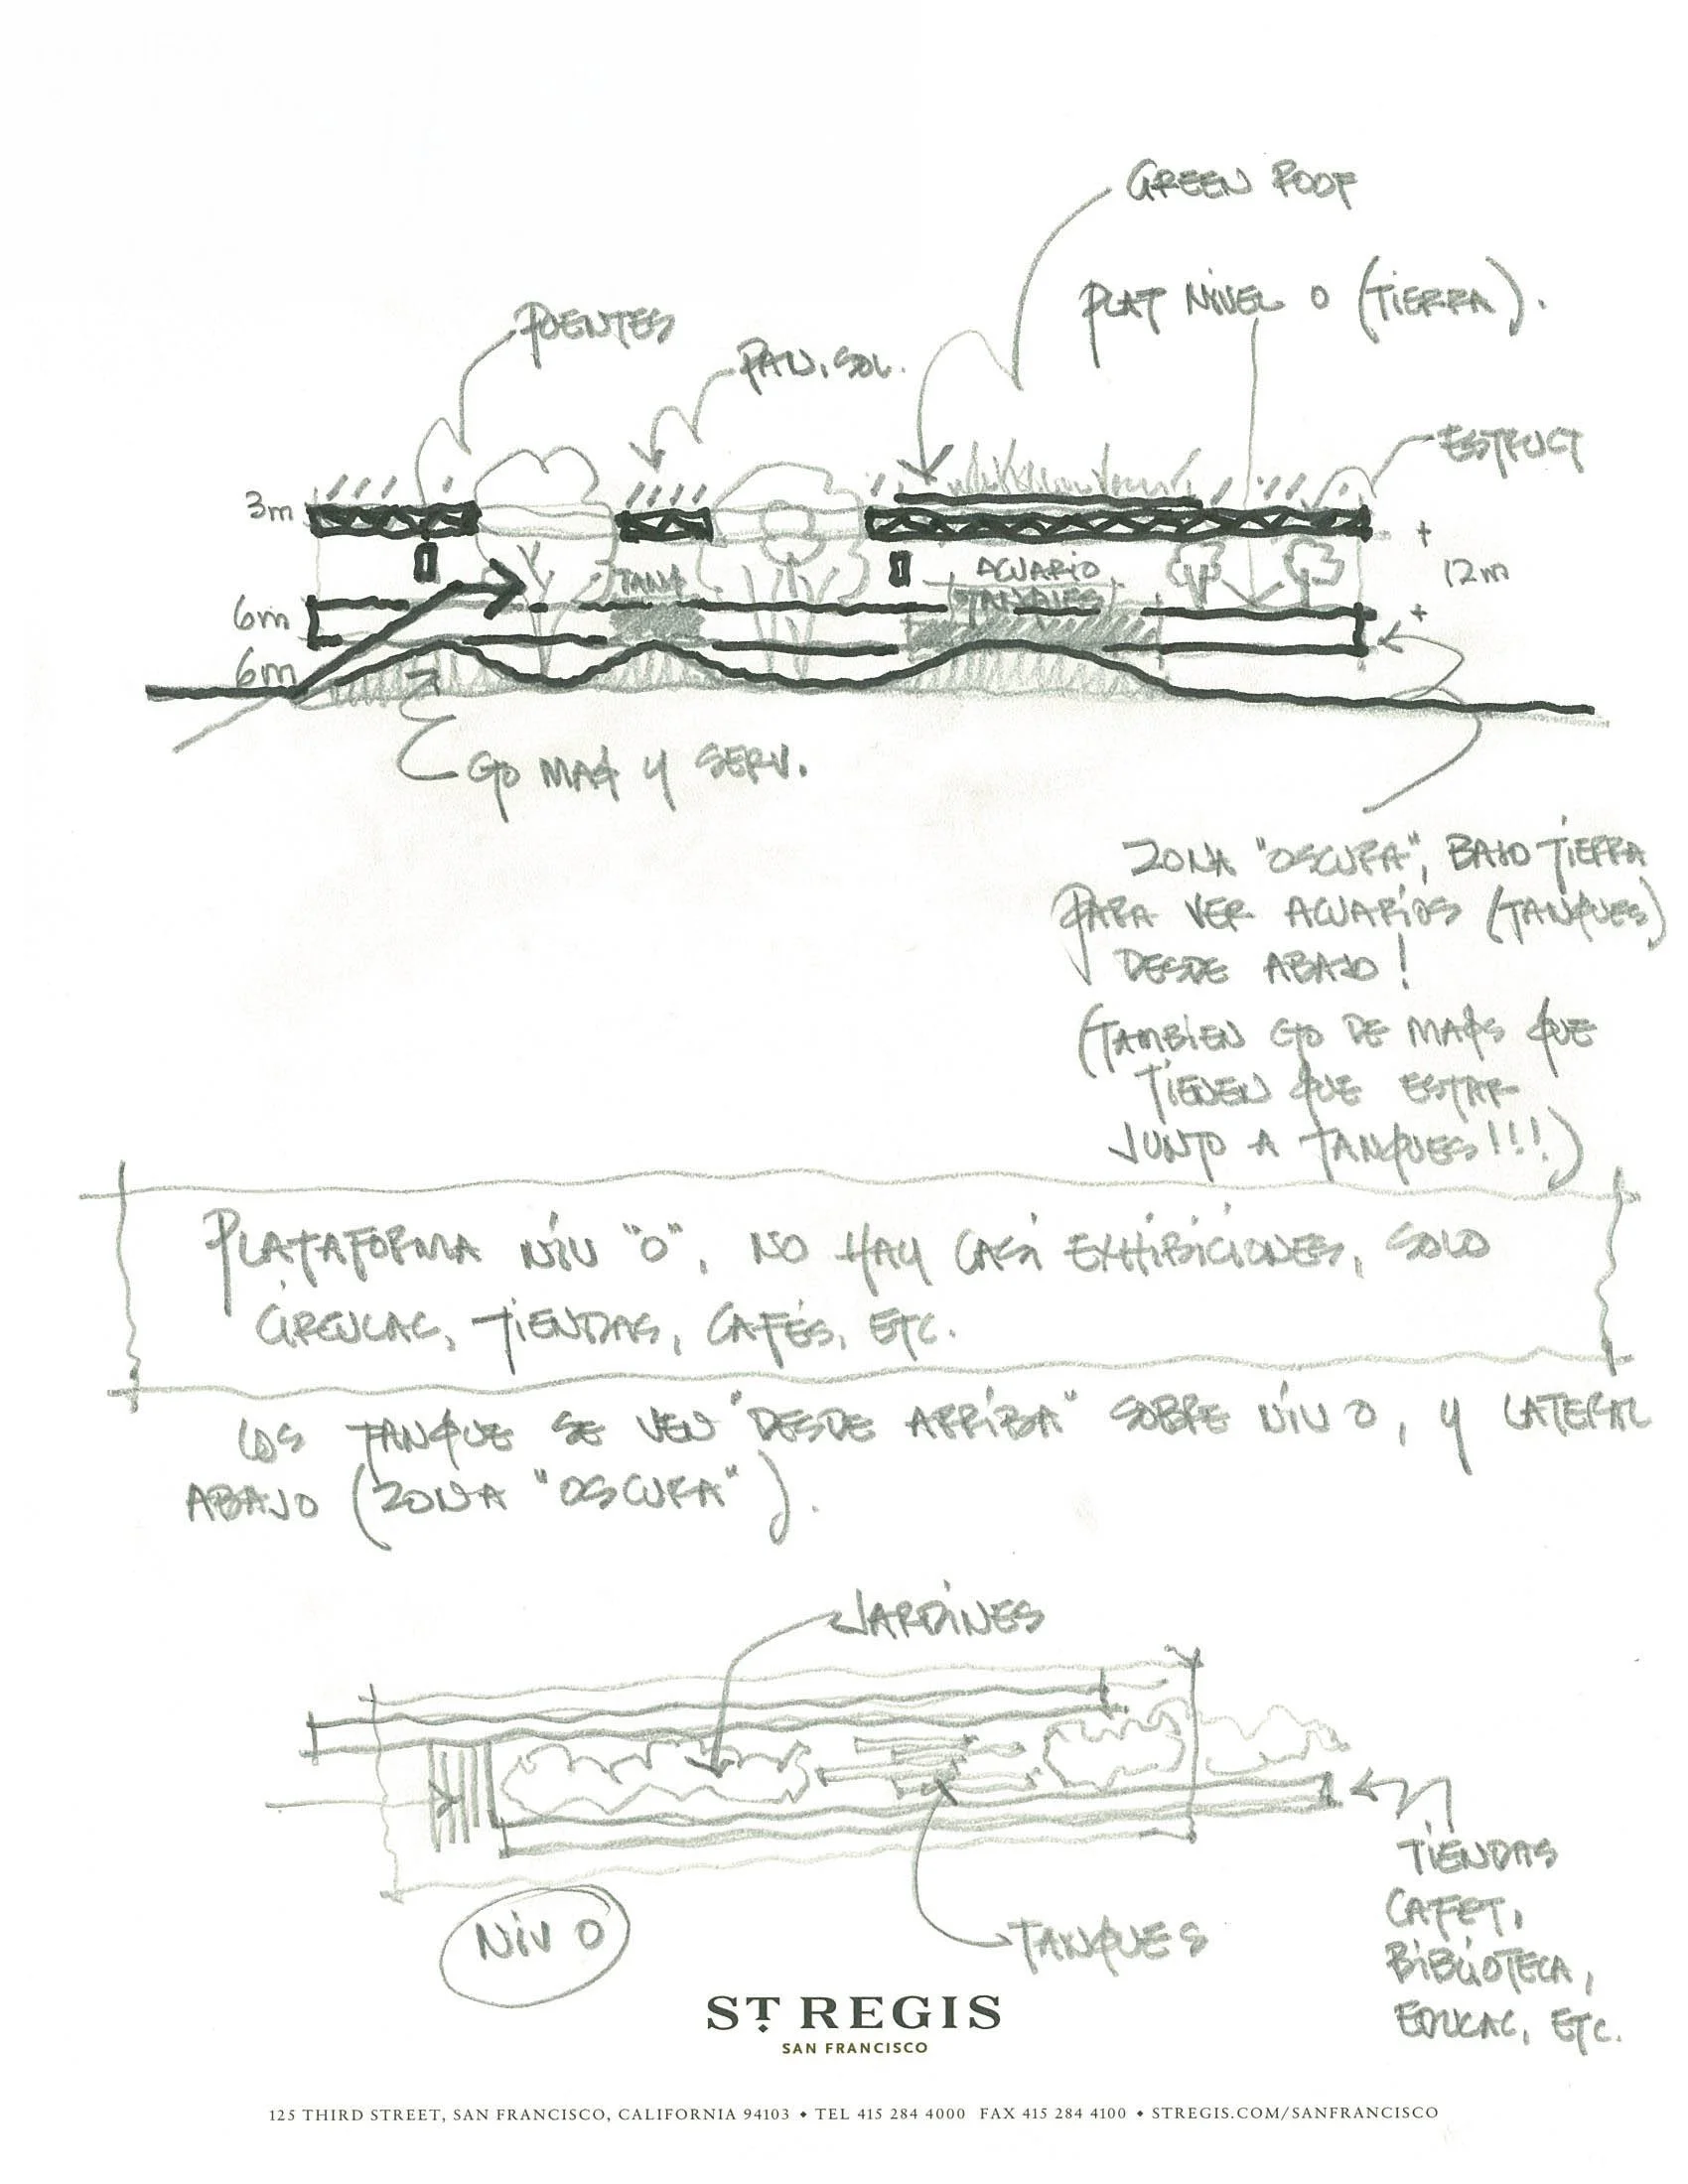 GREEN ROOF
PLAT NIVEL 0 (TIERRA).
PUENTES
PAN. SOL.
ESTRUCT
3m
ACUARIO
TANQ
TANQUES
12m
6m
6m
MAQ Y SERV.
ZONA "OSCURA", BAJO TIERRA
PARA VER ACUARIOS (TANQUES)
DESDE ABAJO!
(TAMBIEN CTO DE MAQS QUE
TIENEN QUE ESTAR
JUNTO A TANQUES!!!)
PLATAFORMA NIV "0", NO HAY CASI EXHIBICIONES, SOLO
CIRCULAC, TIENDAS, CAFÉS, ETC.
LOS TANQUE SE VEN "DESDE ARRIBA" SOBRE NIV 0, Y LATERAL
ABAJO (ZONA "OSCURA").
JARDINES
TIENDAS
CAFET,
BIBLIOTECA,
EDUCAC, ETC.
NIV 0
TANQUES
ST REGIS
SAN FRANCISCO
125 THIRD STREET, SAN FRANCISCO, CALIFORNIA 94103 ♦ TEL 415 284 4000 FAX 415 284 4100 ♦ STREGIS.COM/SANFRANCISCO